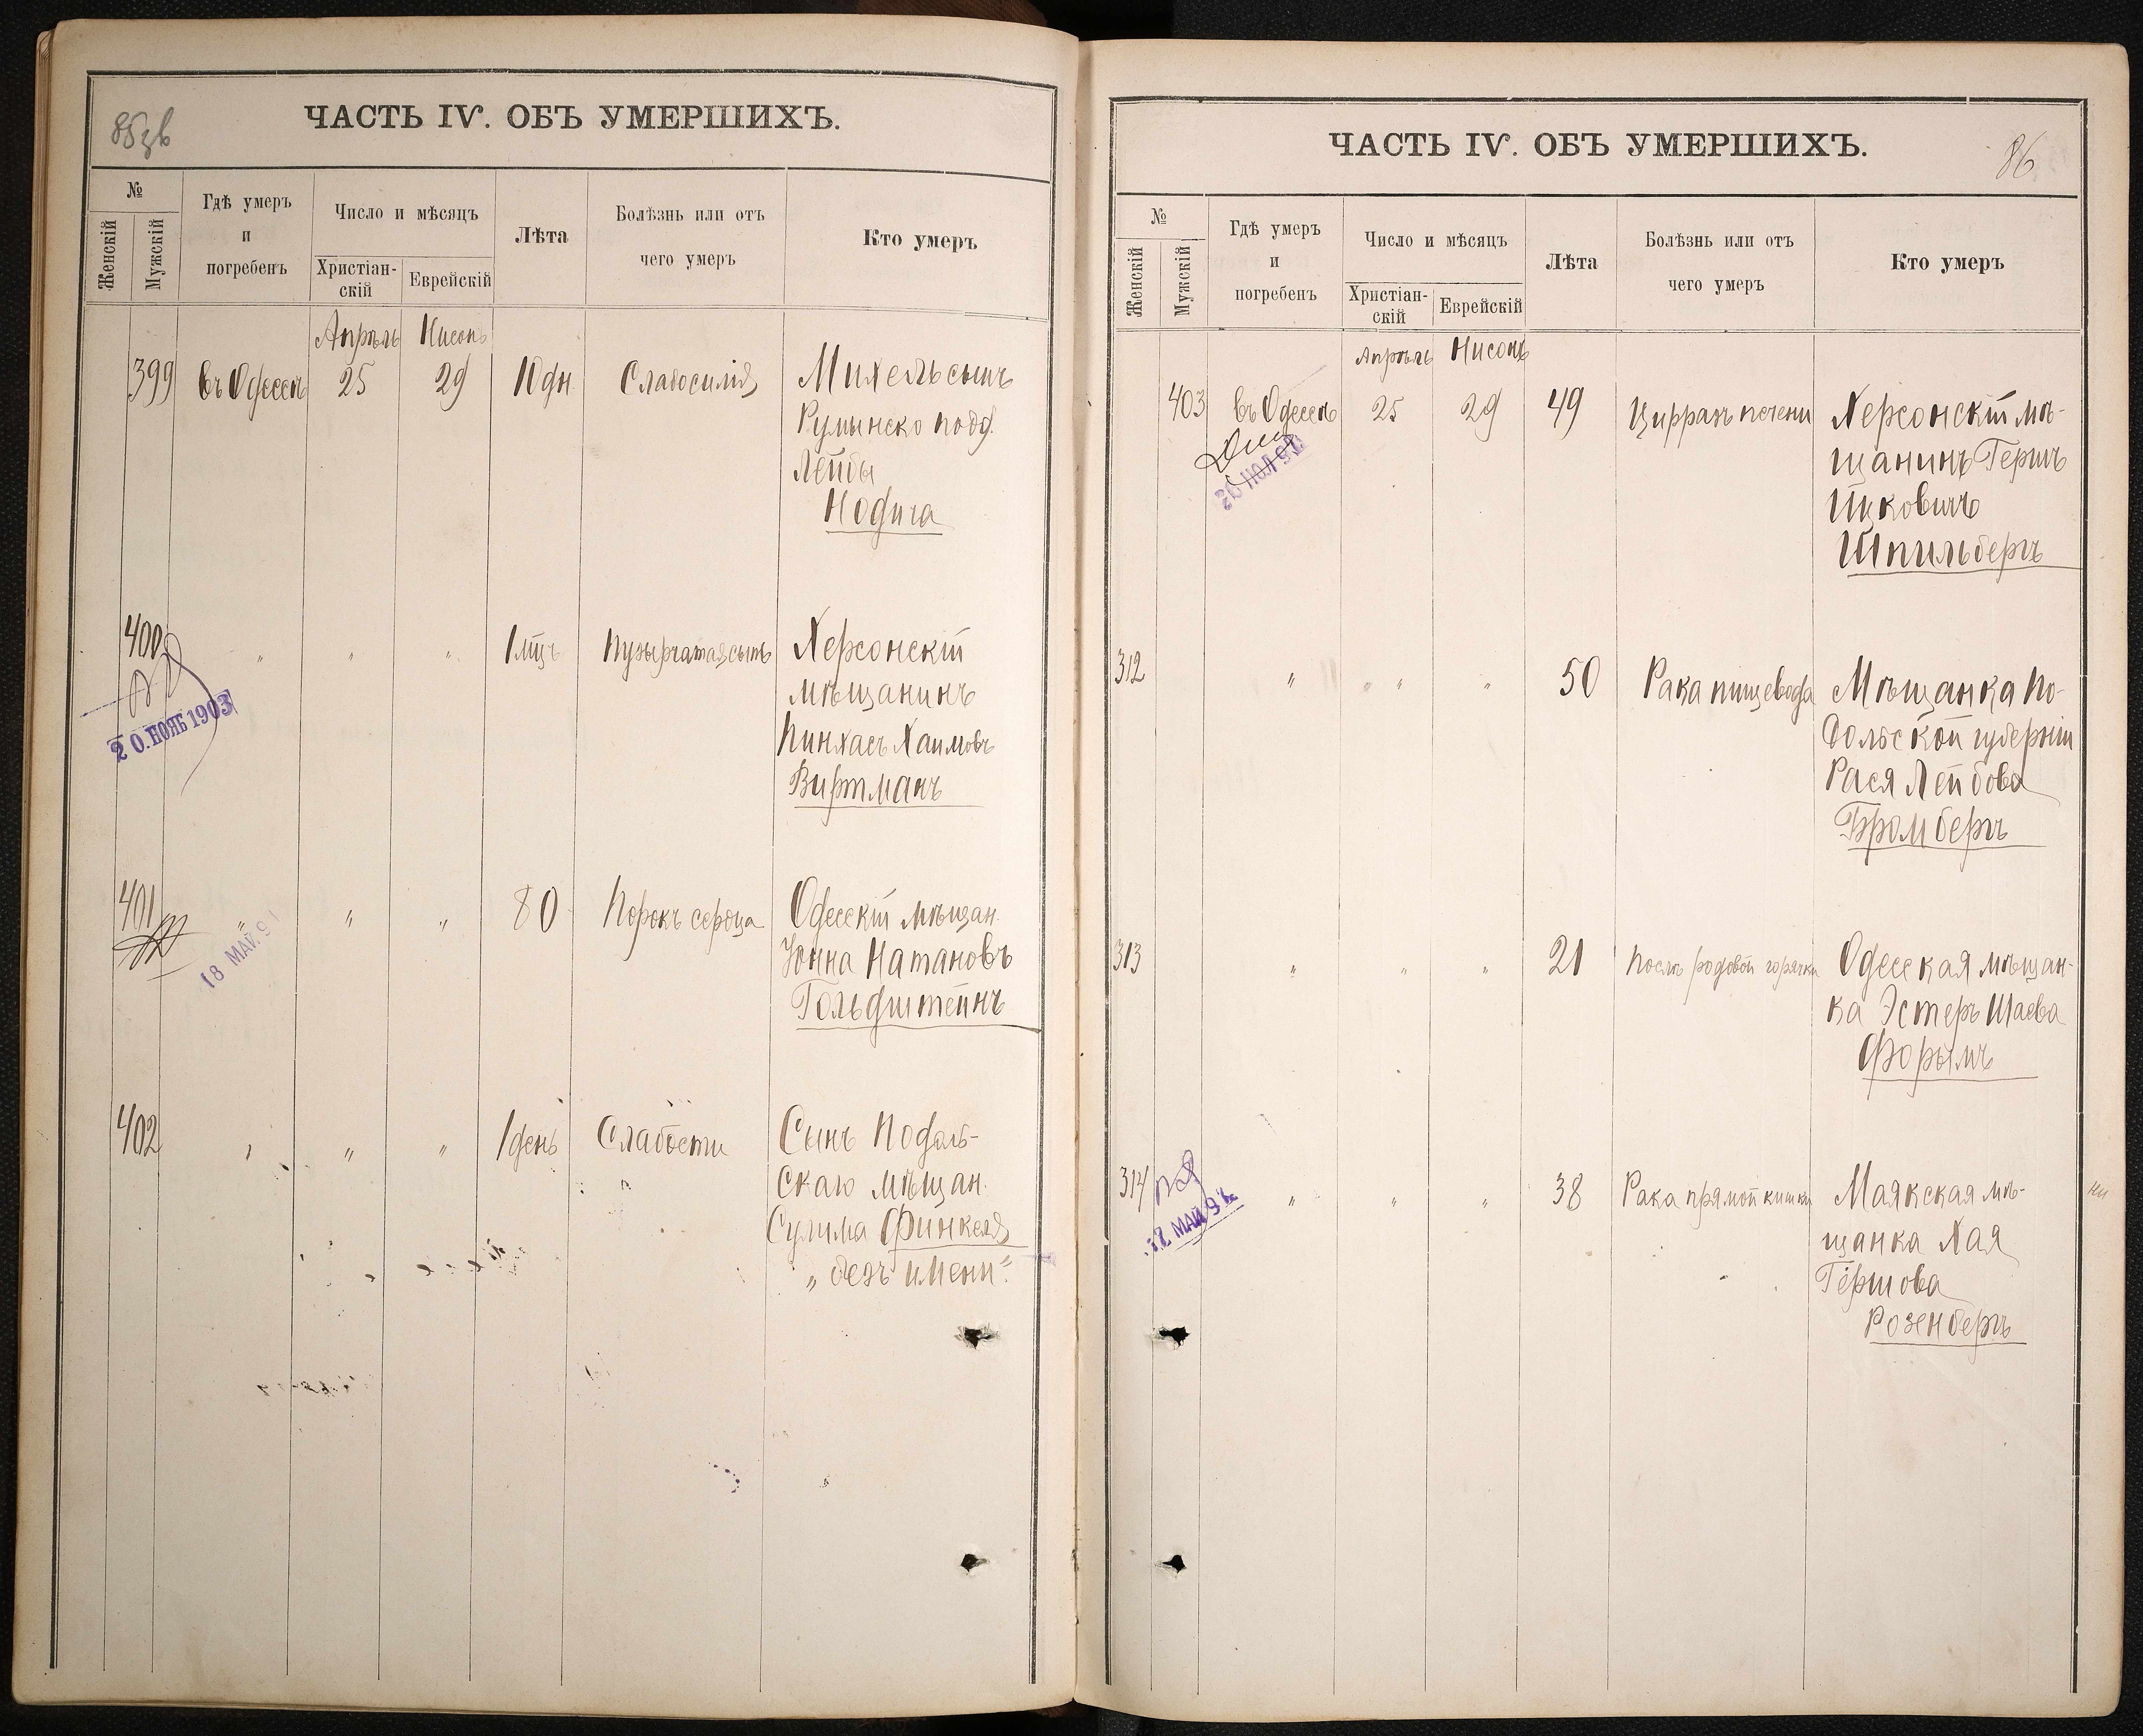 85 зв
ЧАСТЬ IV. ОБЪ УМЕРШИХЪ.
№
Женскій
Мужскій
Гдѣ умеръ
и
погребенъ
Число и мѣсяцъ
Христіан-
скій
Еврейскій
Лѣта
Болѣзнь или отъ
чего умеръ
Кто умеръ
Апрѣль Нисонъ
399 въ Одессѣ 25 29 10 дн. Слабосилія Михель сынъ
Румынско подд.
Лейбы
Нодича
400 " " " 1 мѣц. Пузырчатая сыпь Херсонскій
мѣщанинъ
Пинхасъ Хаимовъ
Виртманъ
20. НОЯБ 1903
401 " " " 80 Порокъ сердца Одесскій мѣщан.
Іонна Натановъ
Гольдштейнъ
18 МАЙ. 91
402 " " " 1 день Слабости Сынъ Подоль-
скаго мѣщан.
Сулима Финкеля
„безъ имени“.
86
ЧАСТЬ IV. ОБЪ УМЕРШИХЪ.
№
Женскій
Мужскій
Гдѣ умеръ
и
погребенъ
Число и мѣсяцъ
Христіан-
скій
Еврейскій
Лѣта
Болѣзнь или отъ
чего умеръ
Кто умеръ
Апрѣль Нисонъ
403 въ Одессѣ 25 29 49 Циррозъ печени Херсонскій мѣ-
щанинъ Гершъ
Ицковичъ
Шпильбергъ
312 " " " 50 Рака пищевода Мѣщанка По-
дольской губерніи
Рася Лейбова
Бромбергъ
313 " " " 21 Послѣ родовой горячки Одесская мѣщан-
ка Эстеръ Шаева
Форымъ
314 " " " 38 Рака прямой кишки Маякская мѣ-
щанка Хая
Гершова
Розенбергъ